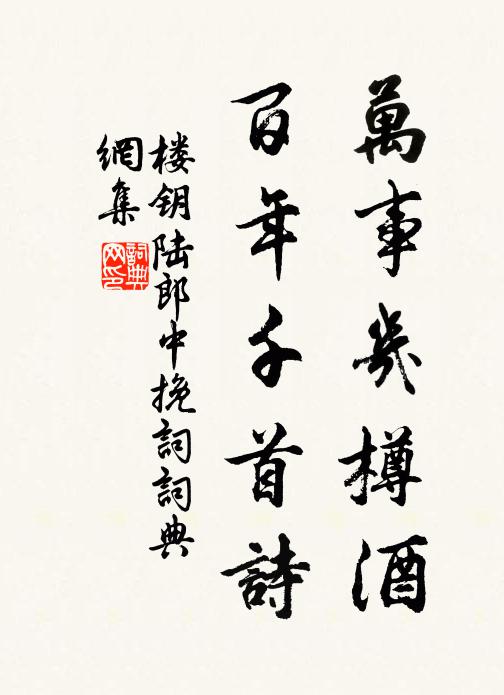 萬事幾樽酒
百年千首詩
楼钥陆郎中挽詞詞典
網集
詞典网印